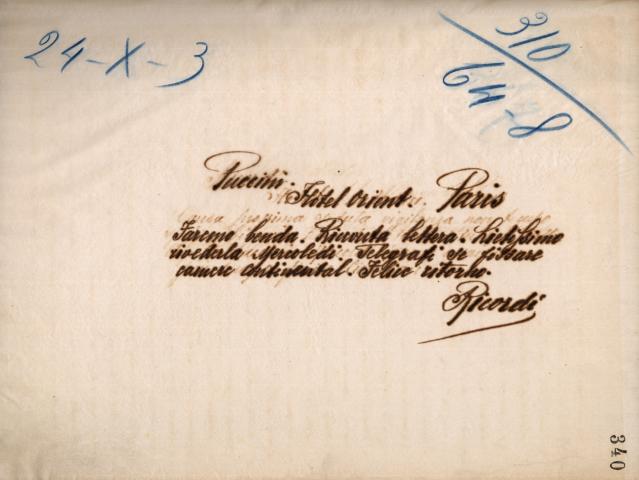 24-X-3
310
64-78
Puccini. Hôtel Orient. Paris
Faremo benda. Ricevuta lettera. Lietissimo
rivederla Mercoledì. Telegrafi se fissare
camere Continental. Felice ritorno.
Ricordi
340